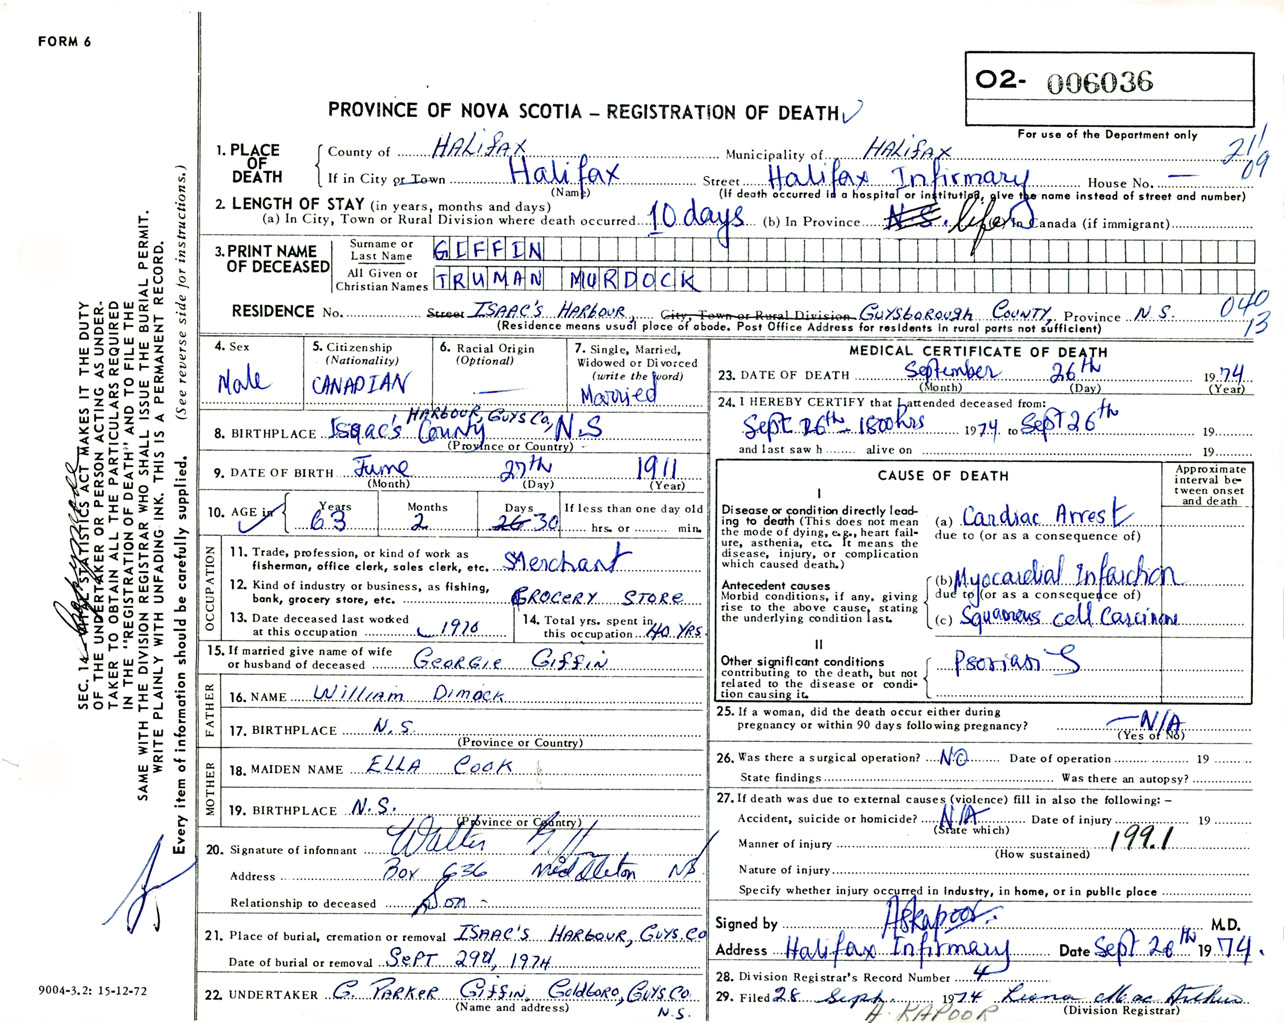 FORM 6
O2- 006036
PROVINCE OF NOVA SCOTIA – REGISTRATION OF DEATH
For use of the Department only
211
09
1. PLACE OF DEATH
County of HALIFAX Municipality of HALIFAX
If in City or Town Halifax Street Halifax Infirmary House No. —
(Name) (If death occurred in a hospital or institution, give the name instead of street and number)
2. LENGTH OF STAY (in years, months and days)
(a) In City, Town or Rural Division where death occurred 10 days (b) In Province N.S. life (c) In Canada (if immigrant)
3. PRINT NAME OF DECEASED
Surname or Last Name GIFFIN
All Given or Christian Names TRUMAN MURDOCK
RESIDENCE No. Street ISAAC'S HARBOUR, City, Town or Rural Division GUYSBOROUGH COUNTY, Province N.S.
040
13
(Residence means usual place of abode. Post Office Address for residents in rural parts not sufficient)
4. Sex
Male
5. Citizenship
(Nationality)
CANADIAN
6. Racial Origin
(Optional)
—
7. Single, Married,
Widowed or Divorced
(write the word)
Married
HARBOUR, GUYS CO,
8. BIRTHPLACE Isaac's County N.S
(Province or Country)
9. DATE OF BIRTH June 27th 1911
(Month) (Day) (Year)
10. AGE in Years 63 Months 2 Days 26 30 If less than one day old
hrs. or min.
OCCUPATION
11. Trade, profession, or kind of work as
fisherman, office clerk, sales clerk, etc. Merchant
12. Kind of industry or business, as fishing,
bank, grocery store, etc. GROCERY STORE
13. Date deceased last worked
at this occupation 1970
14. Total yrs. spent in
this occupation 40 YRS.
15. If married give name of wife
or husband of deceased GEORGIE GIFFIN
FATHER
16. NAME William Dimock
17. BIRTHPLACE N.S.
(Province or Country)
MOTHER
18. MAIDEN NAME ELLA COOK
19. BIRTHPLACE N.S.
(Province or Country)
20. Signature of informant Walter
Address Box 636 Middleton NS
Relationship to deceased Son -
21. Place of burial, cremation or removal ISAAC'S HARBOUR, GUYS.CO
Date of burial or removal SEPT 29th, 1974
22. UNDERTAKER G. PARKER GIFFIN, GOLDBORO, GUYS CO
(Name and address) N.S.
MEDICAL CERTIFICATE OF DEATH
23. DATE OF DEATH September 26th 1974
(Month) (Day) (Year)
24. I HEREBY CERTIFY that I attended deceased from:
Sept 26th - 1800hrs 1974 to Sept 26th 19
and last saw h alive on 19
CAUSE OF DEATH
Approximate
interval be-
tween onset
and death
I
Disease or condition directly lead-
ing to death (This does not mean
the mode of dying, e.g., heart fail-
ure, asthenia, etc. It means the
disease, injury, or complication
which caused death.)
(a) Cardiac Arrest
due to (or as a consequence of)
Antecedent causes
Morbid conditions, if any, giving
rise to the above cause, stating
the underlying condition last.
(b) Myocardial Infarction
due to (or as a consequence of)
(c) Squamous cell Carcinoma
II
Other significant conditions
contributing to the death, but not
related to the disease or condi-
tion causing it.
Psoriasis
25. If a woman, did the death occur either during
pregnancy or within 90 days following pregnancy? —N/A
(Yes or No)
26. Was there a surgical operation? NO Date of operation 19
State findings Was there an autopsy?
27. If death was due to external causes (violence) fill in also the following: –
Accident, suicide or homicide? N/A Date of injury 19
(State which)
Manner of injury 199.1
(How sustained)
Nature of injury
Specify whether injury occurred in Industry, in home, or in public place
Signed by ASKapoor. M.D.
Address Halifax Infirmary Date Sept 26th 1974.
28. Division Registrar's Record Number 4
29. Filed 28 Sept. 1974 Leona Mac
(Division Registrar)
A. KAPOOR
SEC. 14 STATISTICS ACT MAKES IT THE DUTY
OF THE UNDERTAKER OR PERSON ACTING AS UNDER-
TAKER TO OBTAIN ALL THE PARTICULARS REQUIRED
IN THE 'REGISTRATION OF DEATH' AND TO FILE THE
SAME WITH THE DIVISION REGISTRAR WHO SHALL ISSUE THE BURIAL PERMIT.
WRITE PLAINLY WITH UNFADING INK. THIS IS A PERMANENT RECORD.
Every item of information should be carefully supplied. (See reverse side for instructions.)
9004-3.2: 15-12-72